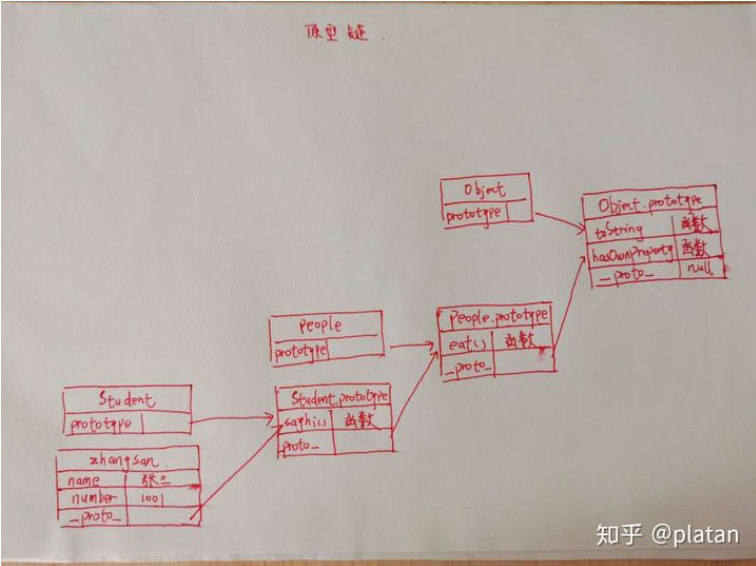 原型链
Object
prototype
Object.prototype
toString 函数
hasOwnProperty 函数
_proto_ null
People
prototype
People.prototype
eat() 函数
_proto_
Student
prototype
Student.prototype
sayhi() 函数
proto_
zhangsan
name 张三
number 1001
_proto_
知乎 @platan